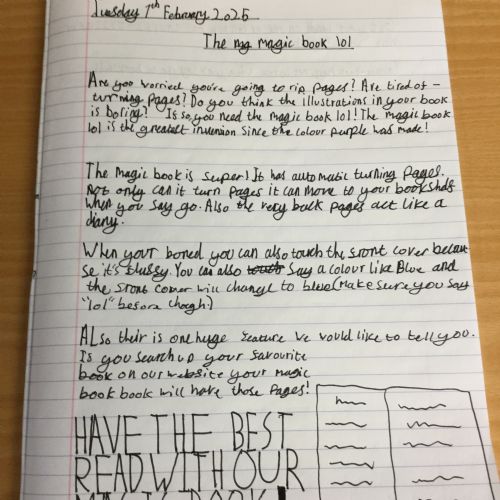 Tuesday 1th February 2025
The mg magic book lol
Are you worried you're going to rip pages? Are tired of -
turning pages? Do you think the illustrations in your book
is boring? If so, you need the magic book lol! The magic book
lol is the greatest invension since the colour purple was made!
The magic book is super! It has automatic turning pages.
Not only can it turn pages it can move to your bookshelf
when you say go. Also the very back pages act like a
diary.
When your bored you can also touch the front cover becau
se it's fluffy. You can also touch say a colour like Blue and
the front corner will change to blue (Make sure you say
"lol" before though.)
ALso their is one huge feature we would like to tell you.
If you search up your favourite
book on our website your magic
book book will have those pages!
HAVE THE BEST
READ WITH OUR
MAGIC BOOK